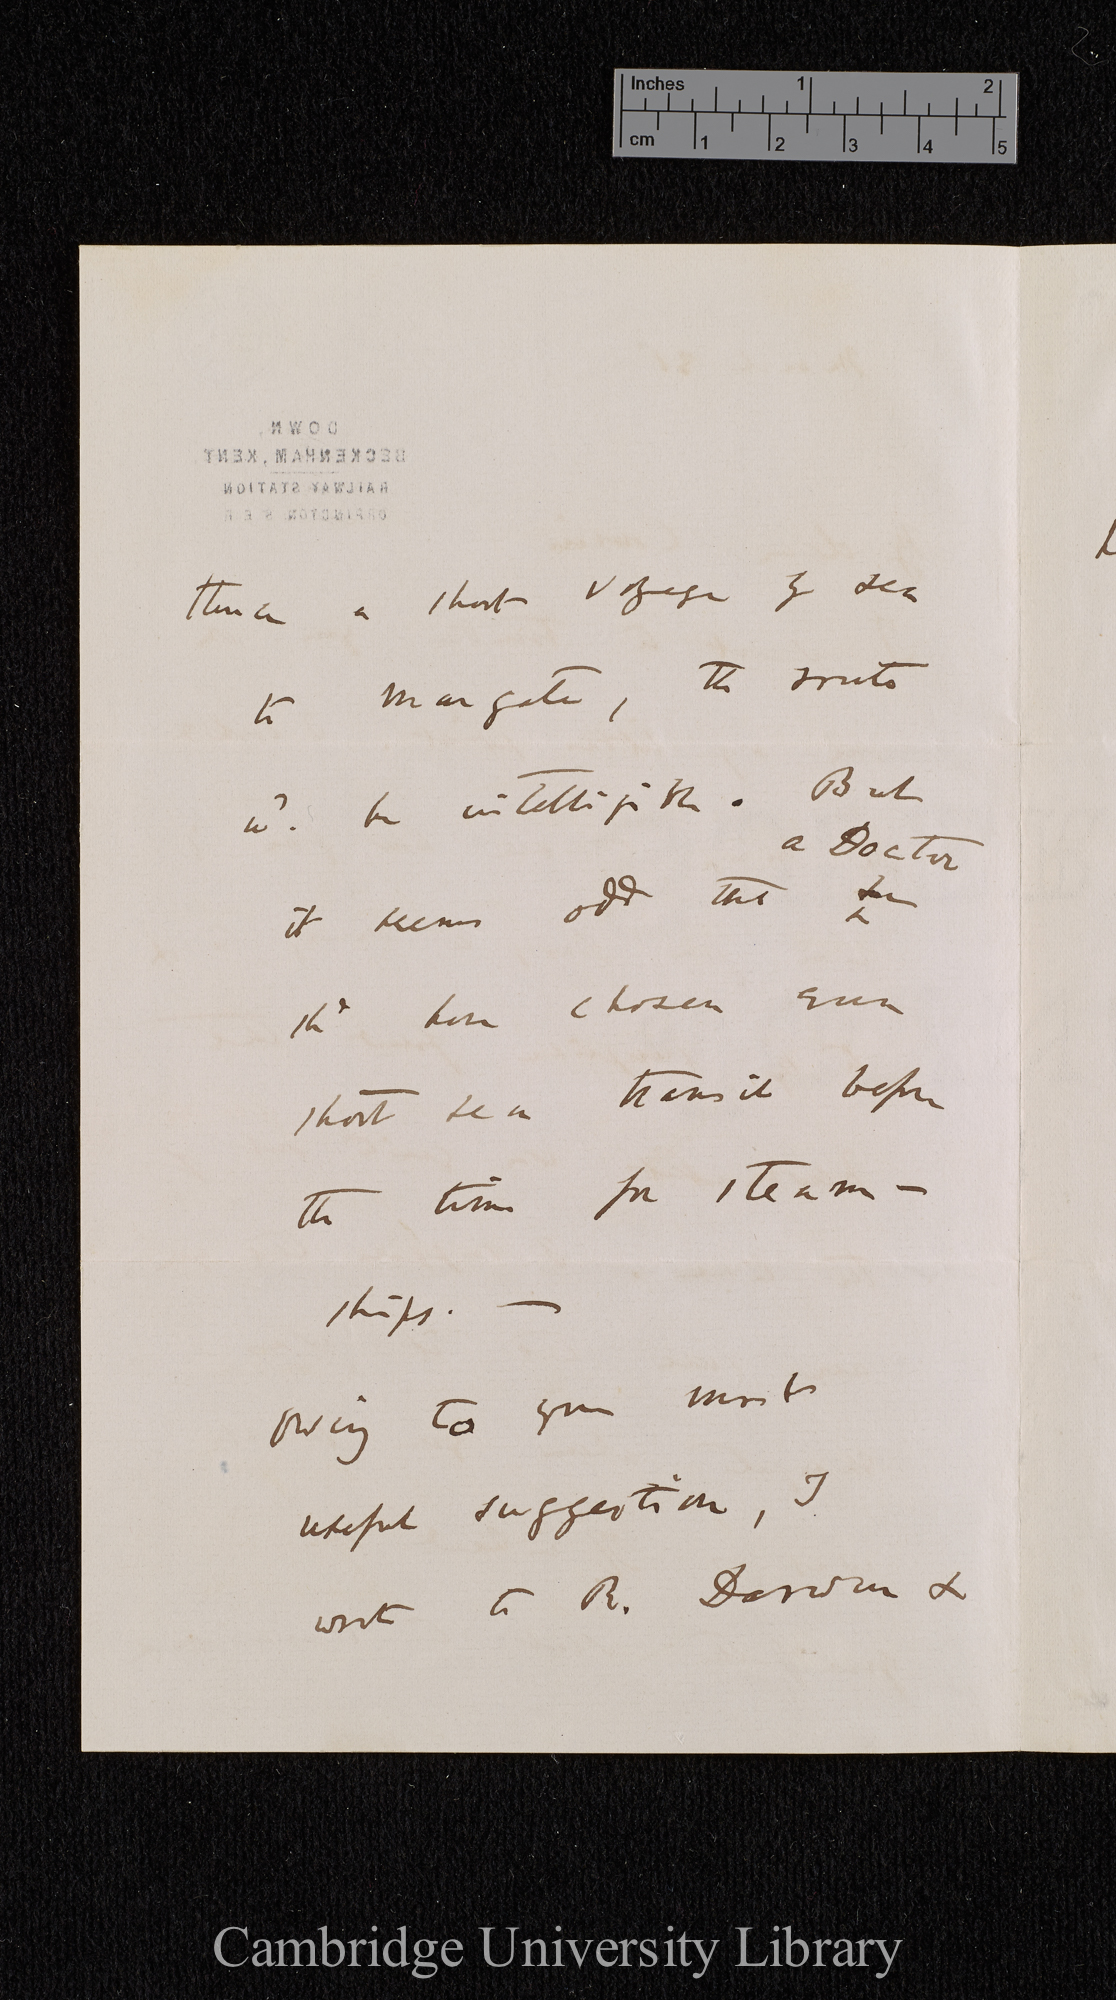 Inches 1 2
cm 1 2 3 4 5
DOWN,
BECKENHAM, KENT.
RAILWAY STATION
ORPINGTON. S. E. R.
thence a short voyage by sea
to Margate, the route
wd. be intelligible. But
a Doctor
it seems odd that he
shd have chosen even
short sea transit before
the time for steam-
ships. —
Owing to your most
useful suggestion, I
wrote to R. Darwin &
Cambridge University Library